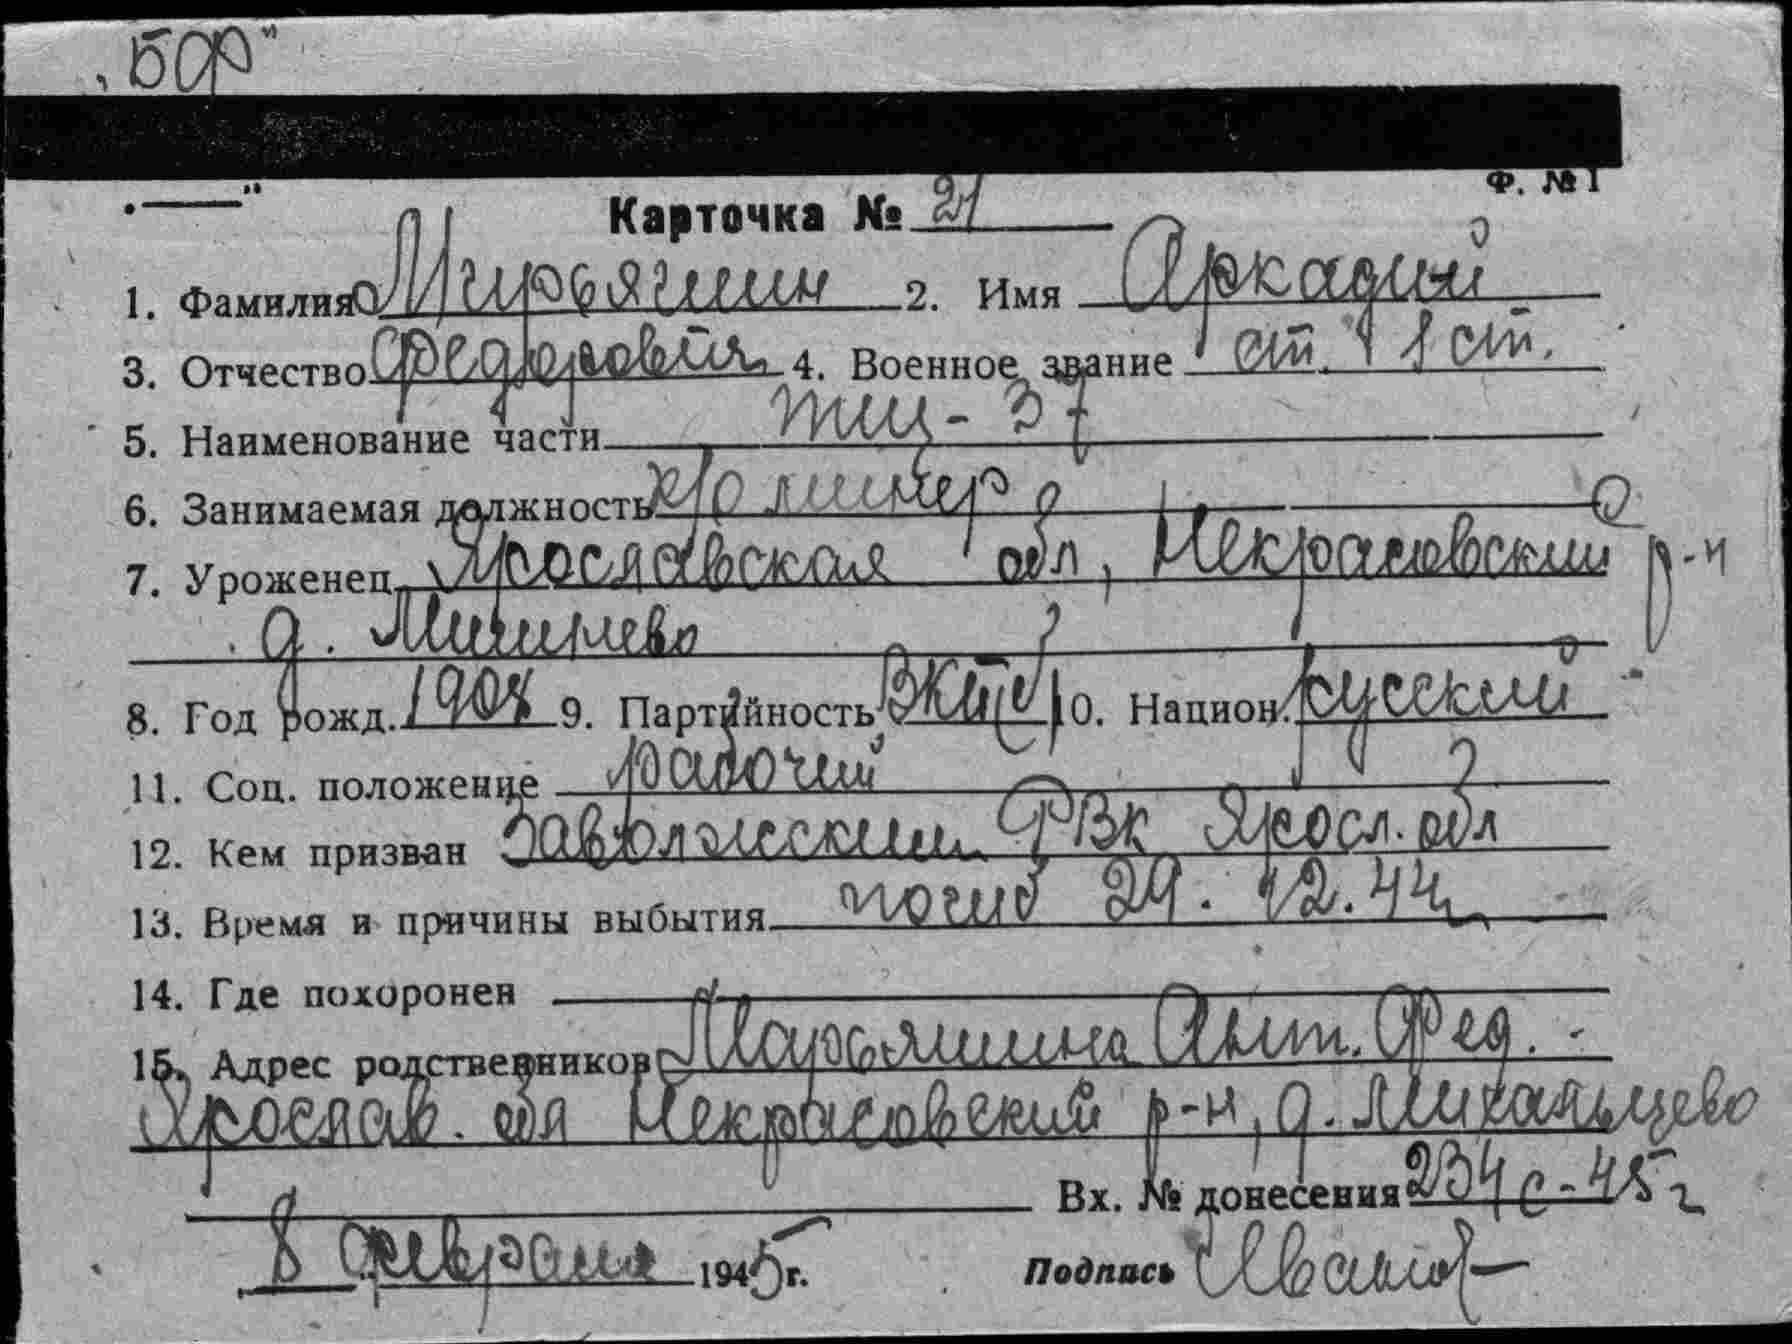 „БФ"
Ф. № 1
„——"
Карточка № 21
1. Фамилия Мирьяшин 2. Имя Аркадий
3. Отчество Федорович 4. Военное звание ст. 1 ст.
5. Наименование части ТЩ-37
6. Занимаемая должность к/о минер
7. Уроженец Ярославская обл, Некрасовский р-н
д.
8. Год рожд. 1908 9. Партийность ВКП(б) 10. Национ. русский
11. Соц. положение рабочий
12. Кем призван Заволжским РВК Яросл. обл
13. Время и причины выбытия погиб 29.12.44
14. Где похоронен
15. Адрес родственников Марьяшина Ант. Фед.-
Ярослав. обл Некрасовский р-н, д. Михальцево
Вх. № донесения 234с-45г
8 февраля 1945 г. Подпись Иванов